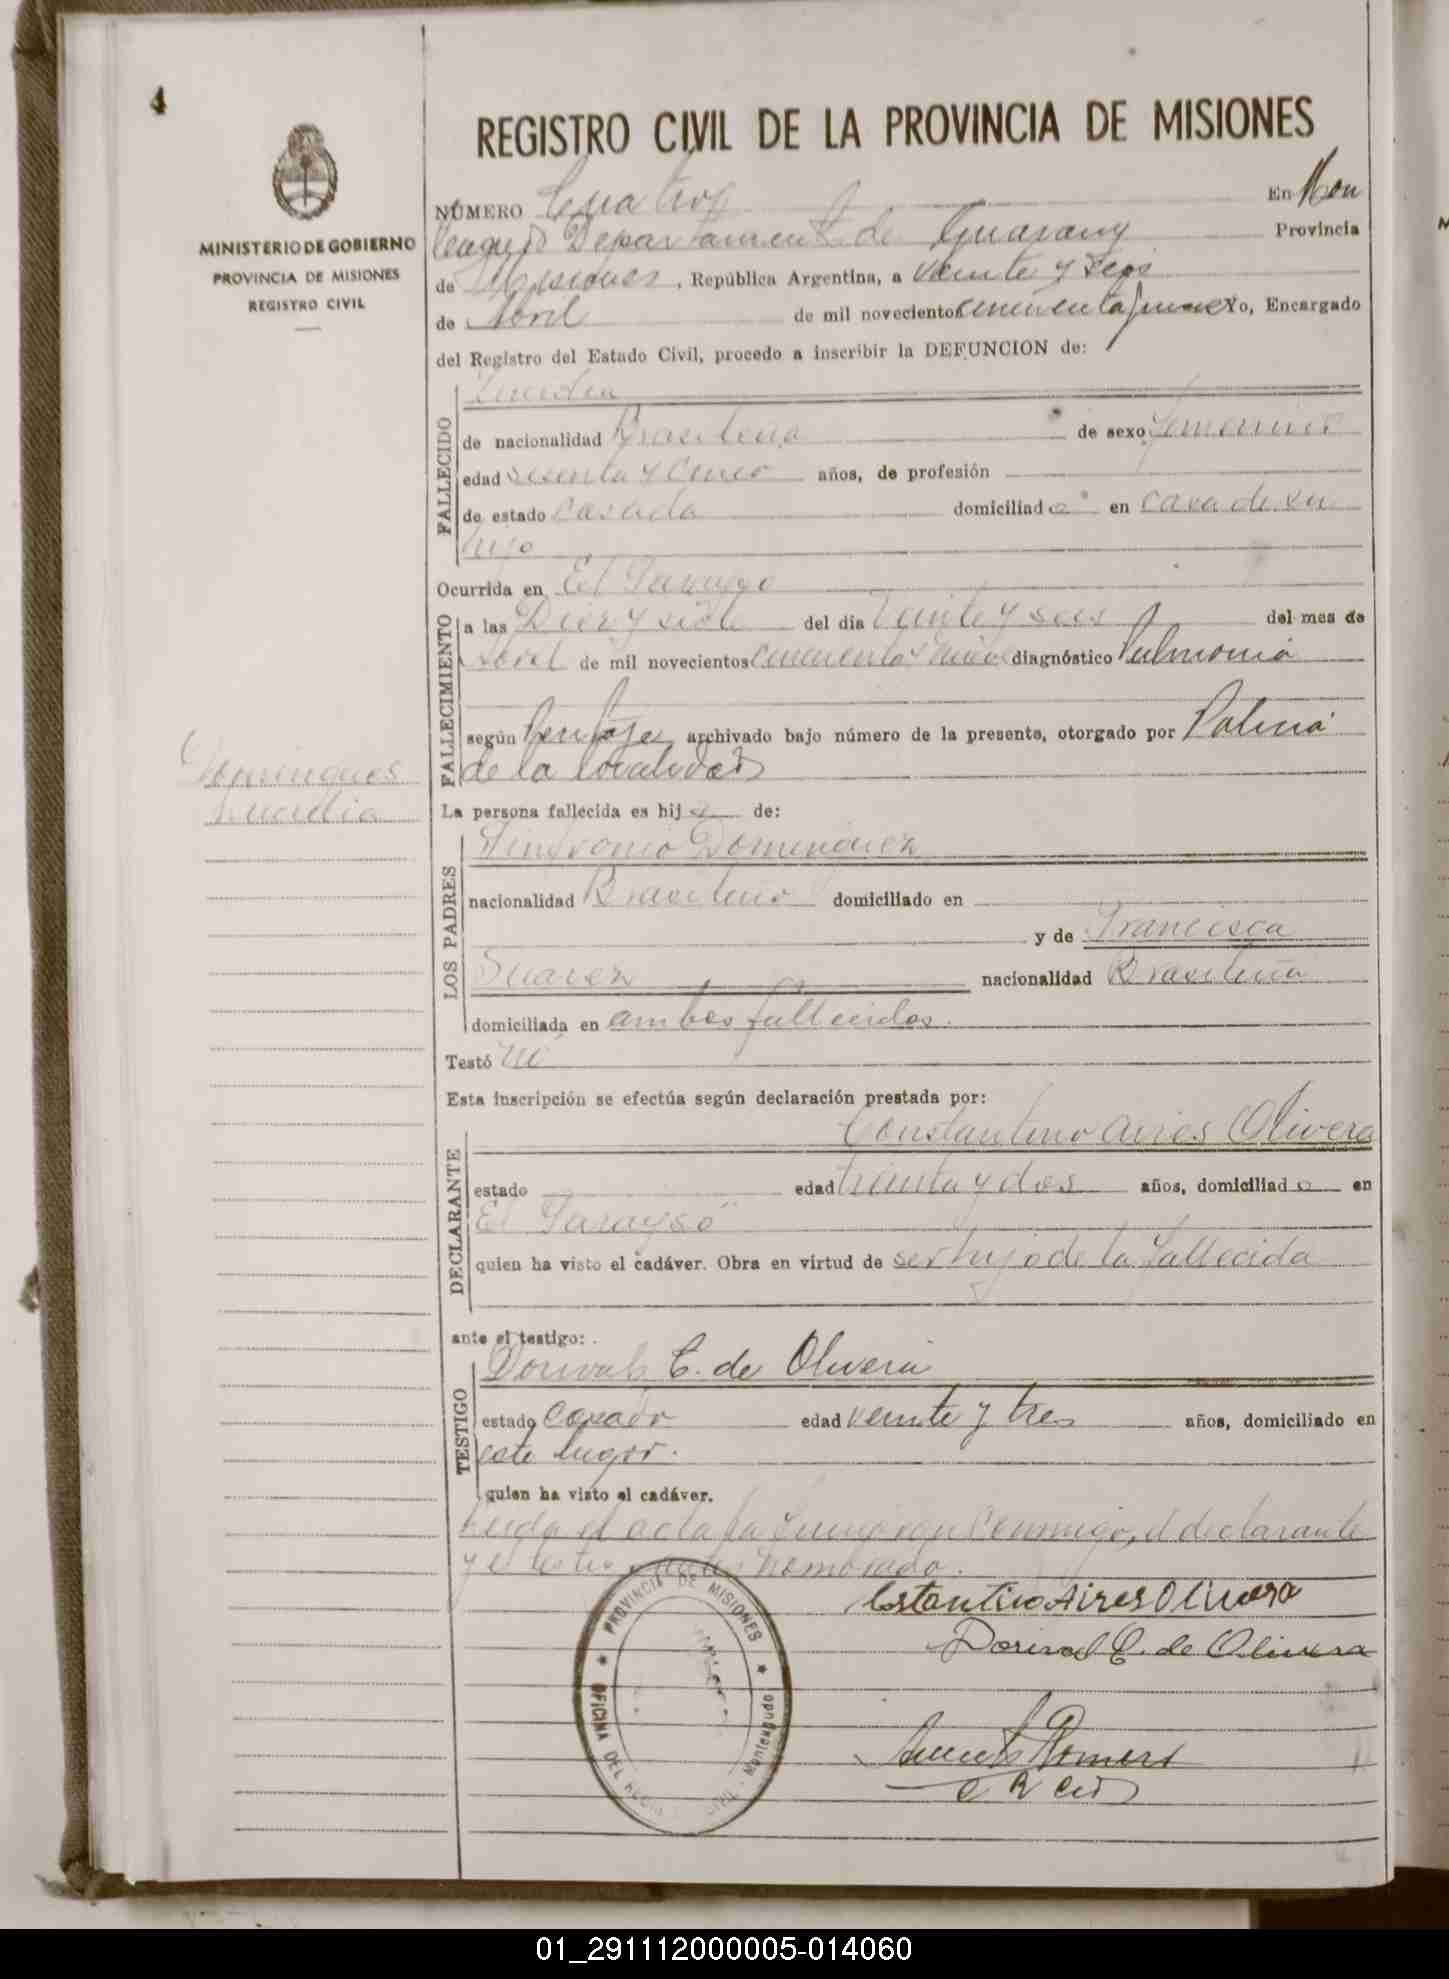 4
MINISTERIO DE GOBIERNO
PROVINCIA DE MISIONES
REGISTRO CIVIL
REGISTRO CIVIL DE LA PROVINCIA DE MISIONES
NÚMERO Cuatro En Mon
teagudo Departamento de Guarany Provincia
de Misiones, República Argentina, a veinte y seis
de Abril de mil novecientos cincuenta y nueve Yo, Encargado
del Registro del Estado Civil, procedo a inscribir la DEFUNCION de:
FALLECIDO
de nacionalidad Brasileña de sexo femenino
edad sesenta y cinco años, de profesión
de estado casada domiciliad a en casa de su
hijo
Ocurrida en El Parayso
FALLECIMIENTO
a las Diez y siete del dia veinte y seis del mes de
Abril de mil novecientos cincuenta y nueve diagnóstico Pulmonia
según archivado bajo número de la presente, otorgado por
de la localidad
Domingues
La persona fallecida es hij a de:
LOS PADRES
Dominguez
nacionalidad Brasileño domiciliado en
y de Francisca
Suarez nacionalidad Brasileña
domiciliada en ambos fallecidos.
Testó no
Esta inscripción se efectúa según declaración prestada por:
DECLARANTE
Constantino Aires Olivera
estado edad treinta y dos años, domiciliad o en
El Parayso
quien ha visto el cadáver. Obra en virtud de ser hijo de la fallecida
ante el testigo:
TESTIGO
Dorival C. de Olivera
estado casado edad veinte y tres años, domiciliado en
este lugar.
quien ha visto el cadáver.
Leida el acta la firmaron conmigo, el declarante
y el testigo nombrado.
Costantino Aires Olivera
Dorival C. de Olivera
PROVINCIA DE MISIONES
OFICINA DEL REGISTRO CIVIL - Monteagudo
Romero
01_291112000005-014060